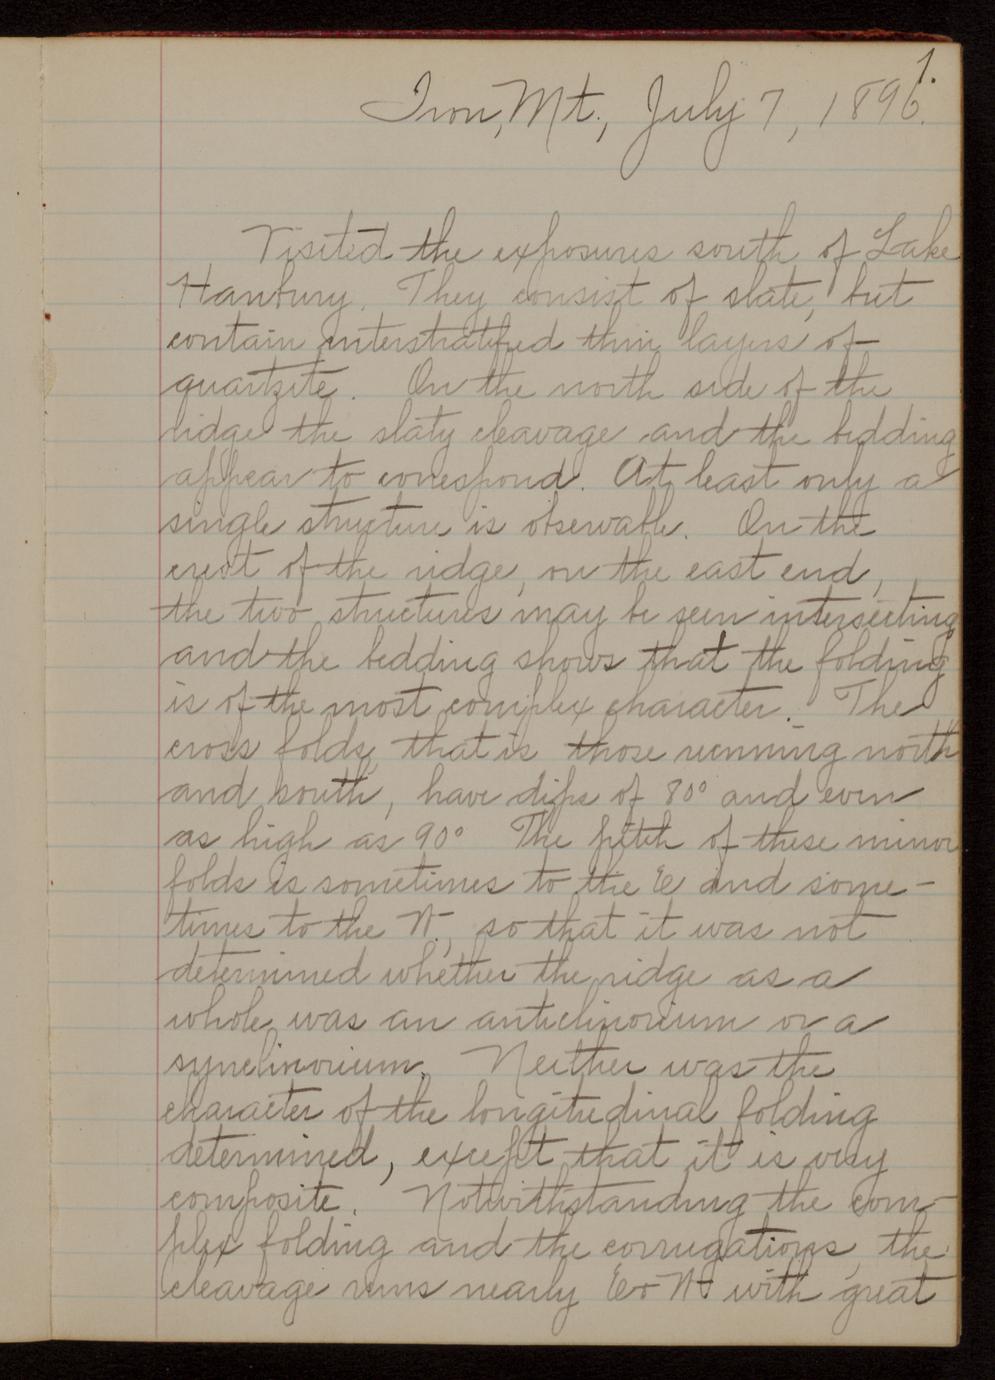 1.
Iron, Mt., July 7, 1896.
Visited the exposures south of Lake
Hanbury. They consist of slate, but
contain interstratified thin layers of
quartzite. On the north side of the
ridge the slaty cleavage and the bedding
appear to correspond. At least only a
single structure is observable. On the
crest of the ridge, on the east end,
the two structures may be seen intersecting
and the bedding shows that the folding
is of the most complex character. The
cross folds, that is those running north
and south, have dips of 80° and even
as high as 90° The pitch of these minor
folds is sometimes to the E and some-
times to the W, so that it was not
determined whether the ridge as a
whole was an anticlinorium or a
synclinorium. Neither was the
character of the longitudinal folding
determined, except that it is very
composite. Notwithstanding the com-
plex folding and the corrugations, the
cleavage runs nearly E + W with great